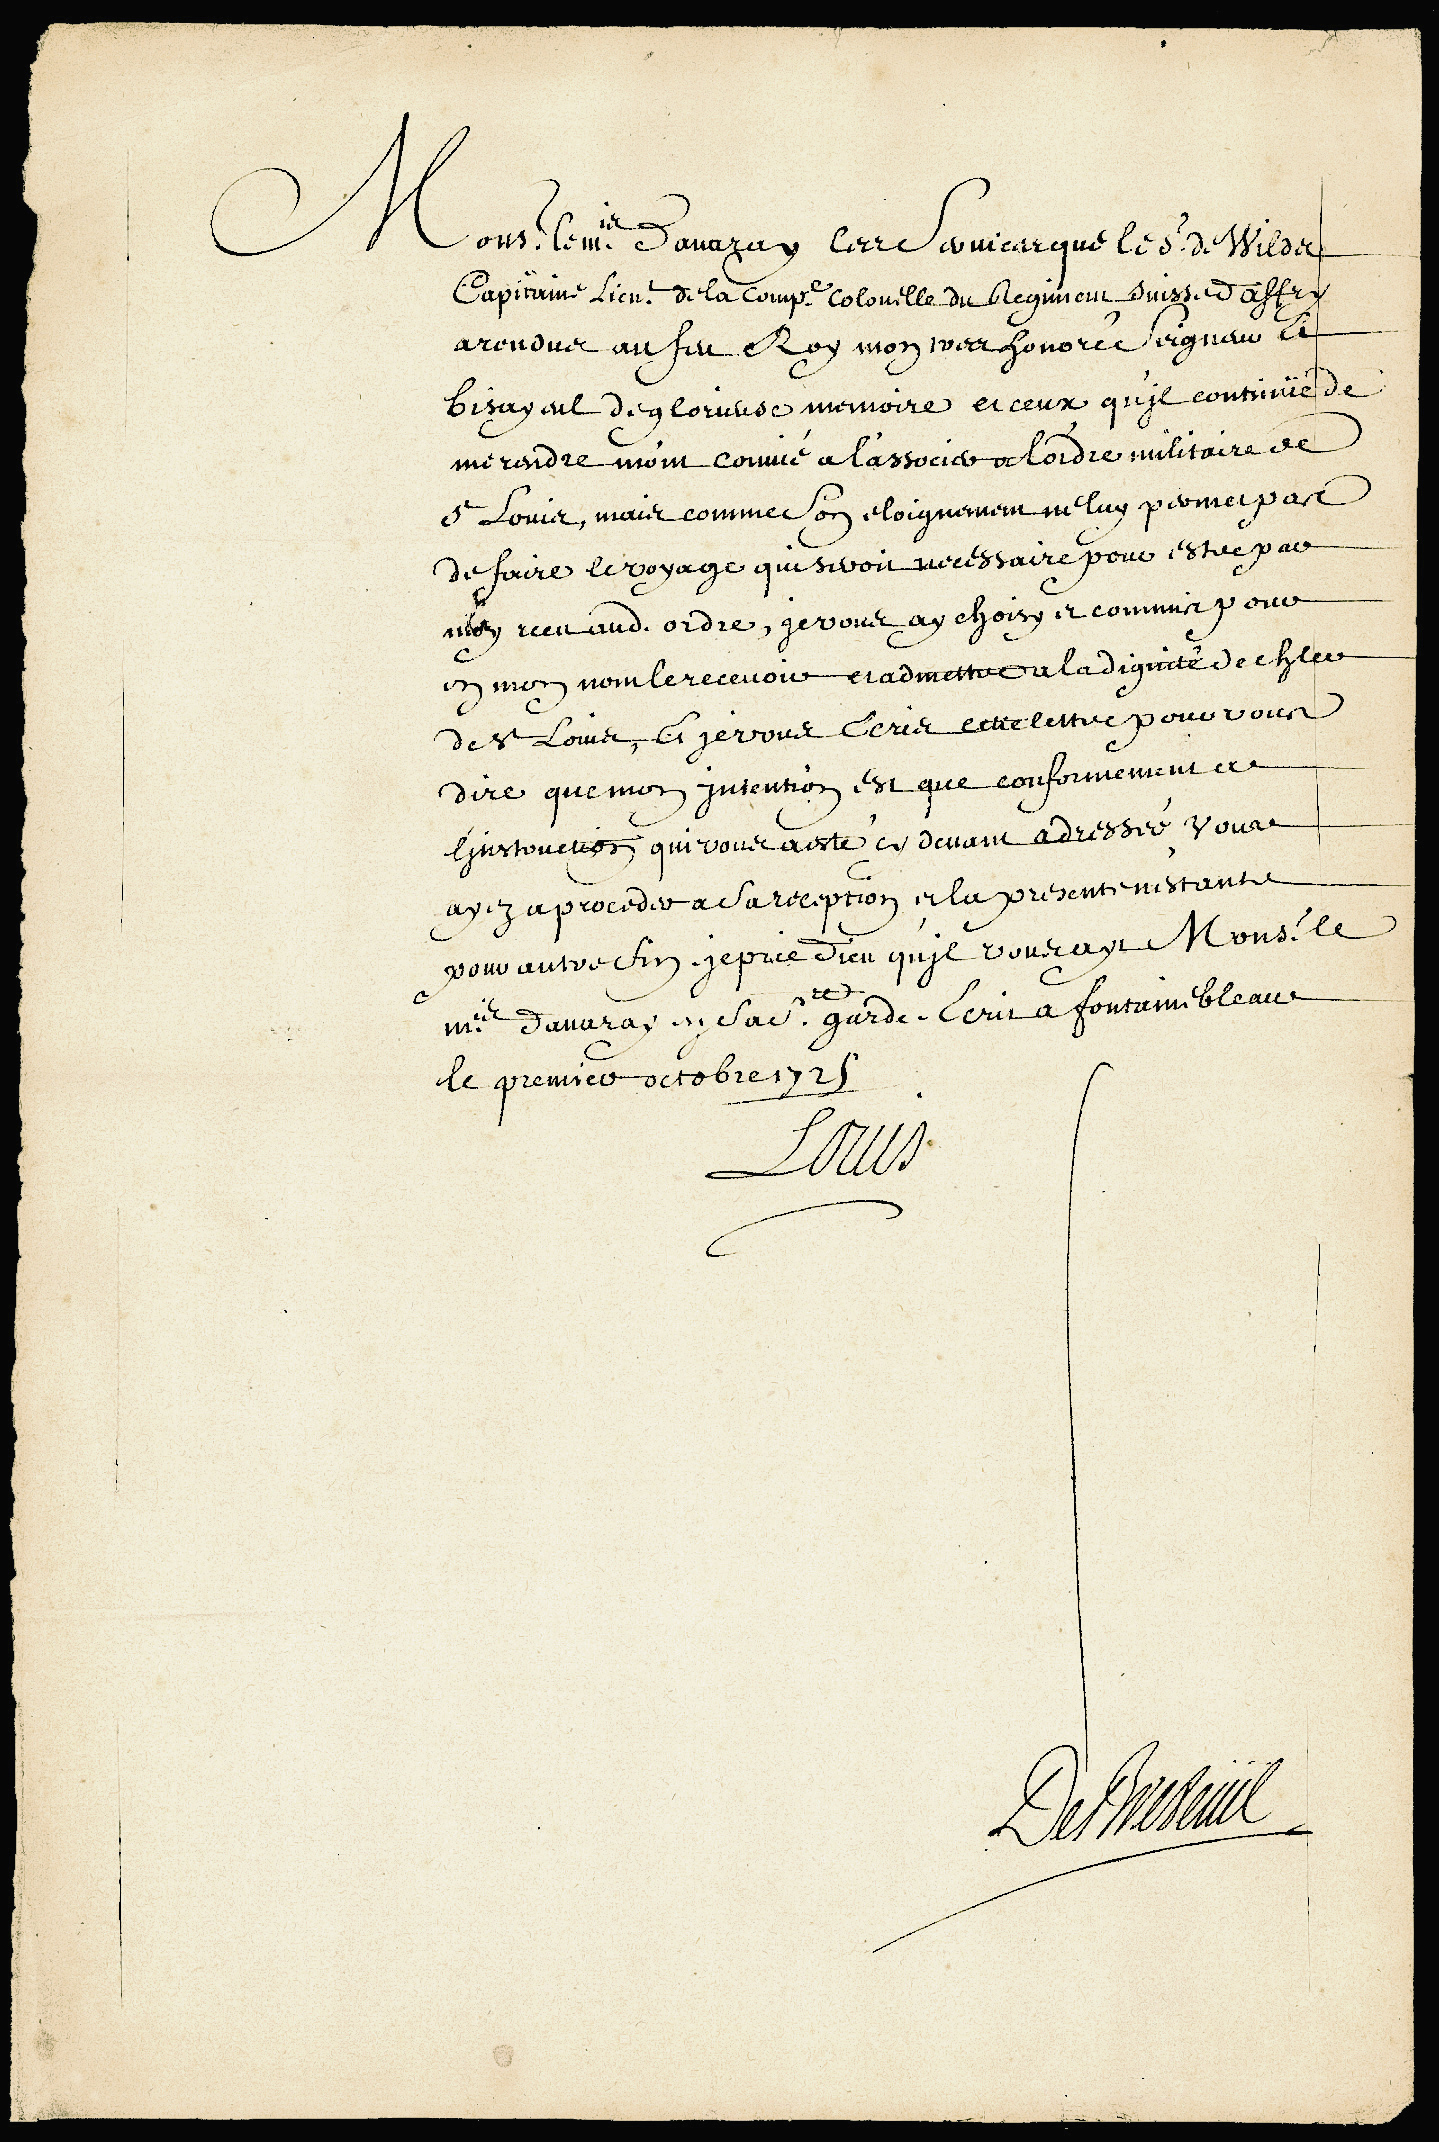 Mons.r le m.is Davaray les services que le s.r de Wilder
Capitaine Lieu.t de la Comp.e Colonelle du Regiment suisse d'affry
a rendus au feu Roy mon tres honoré Seigneur et
bisayeul de glorieuse memoire et ceux qu'jl continüe de
me rendre m'ont convié a l'associer a l'ordre militaire de
S.t Louis, mais comme son eloignement ne luy permet pas
de faire le voyage qui seroit necessaire pour estre par
moy receu aud. ordre, je vous ay choisy et commis pour
en mon nom le recevoir et admettre a la dignité de chler
de S.t Louis, Et je vous Ecris cette lettre pour vous
dire que mon jntention est que conformement a
l'jnstruction qui vous a esté cy devant adressée vous
ayez a proceder a sa reception et la presente n'estant
pour autre fin. je prie Dieu qu'jl vous ayt Mons.r le
m.is Davaray en sa s.te garde. Ecrit a fontainebleau
le premier octobre 1725
Louis
De Breteuil